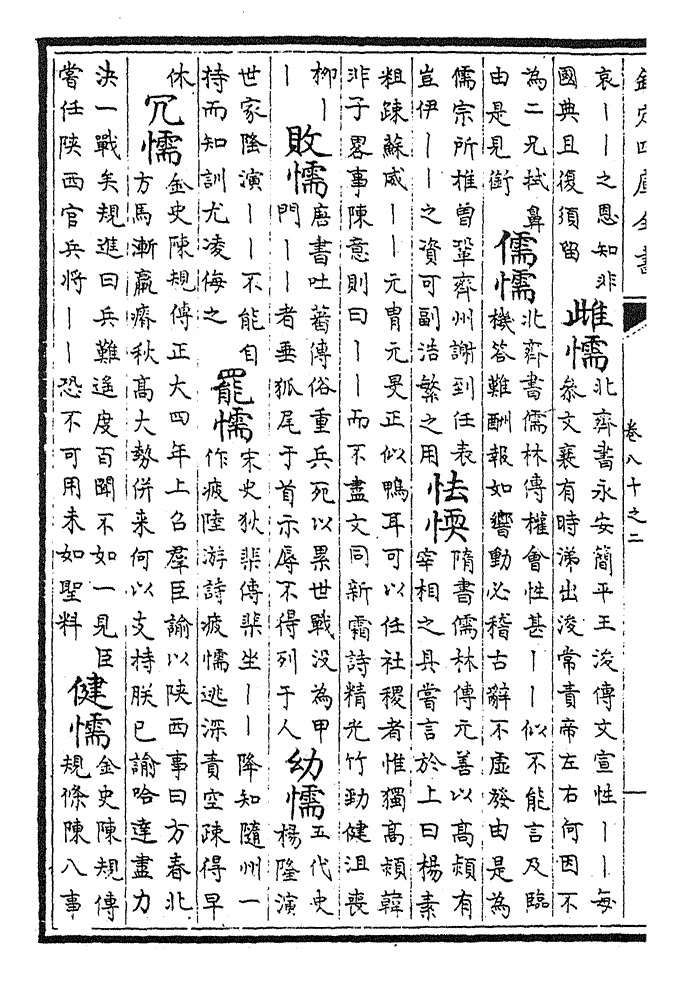 欽定四庫全書 卷八十之二 一
哀丨丨之恩知非
國典且復須留
雌懦
北齊書永安簡平王浚傳文宣性丨丨每
叅文襄有時涕出浚常責帝左右何因不
為二兄拭鼻
由是見銜
儒懦
北齊書儒林傳權會性甚丨丨似不能言及臨
機答難酬報如響動必稽古辭不虛發由是為
儒宗所推曽鞏齊州謝到任表
豈伊丨丨之資可副浩繁之用
怯愞
隋書儒林傳元善以髙熲有
宰相之具嘗言於上曰楊素
粗疎蘇威丨丨元胄元旻正似鴨耳可以任社稷者惟獨髙熲韓
非子畧事陳意則曰丨丨而不盡文同新霜詩精光竹勁健沮喪
柳丨
丨
敗懦
唐書吐蕃傳俗重兵死以累世戰没為甲
門丨丨者垂狐尾于首示辱不得列于人
幼懦
五代史
楊隆演
世家隆演丨丨不能自
持而知訓尤凌侮之
罷懦
宋史狄棐傳棐坐丨丨降知隨州一
作疲陸游詩疲懦逃深責空疎得早
休
冗懦
金史陳規傳正大四年上召羣臣諭以陜西事曰方春北
方馬漸羸瘠秋髙大勢併来何以支持朕已諭哈達盡力
決一戰矣規進曰兵難遥度百聞不如一見臣
嘗任陜西官兵將丨丨恐不可用未如聖料
健懦
金史陳規傳
規條陳八事